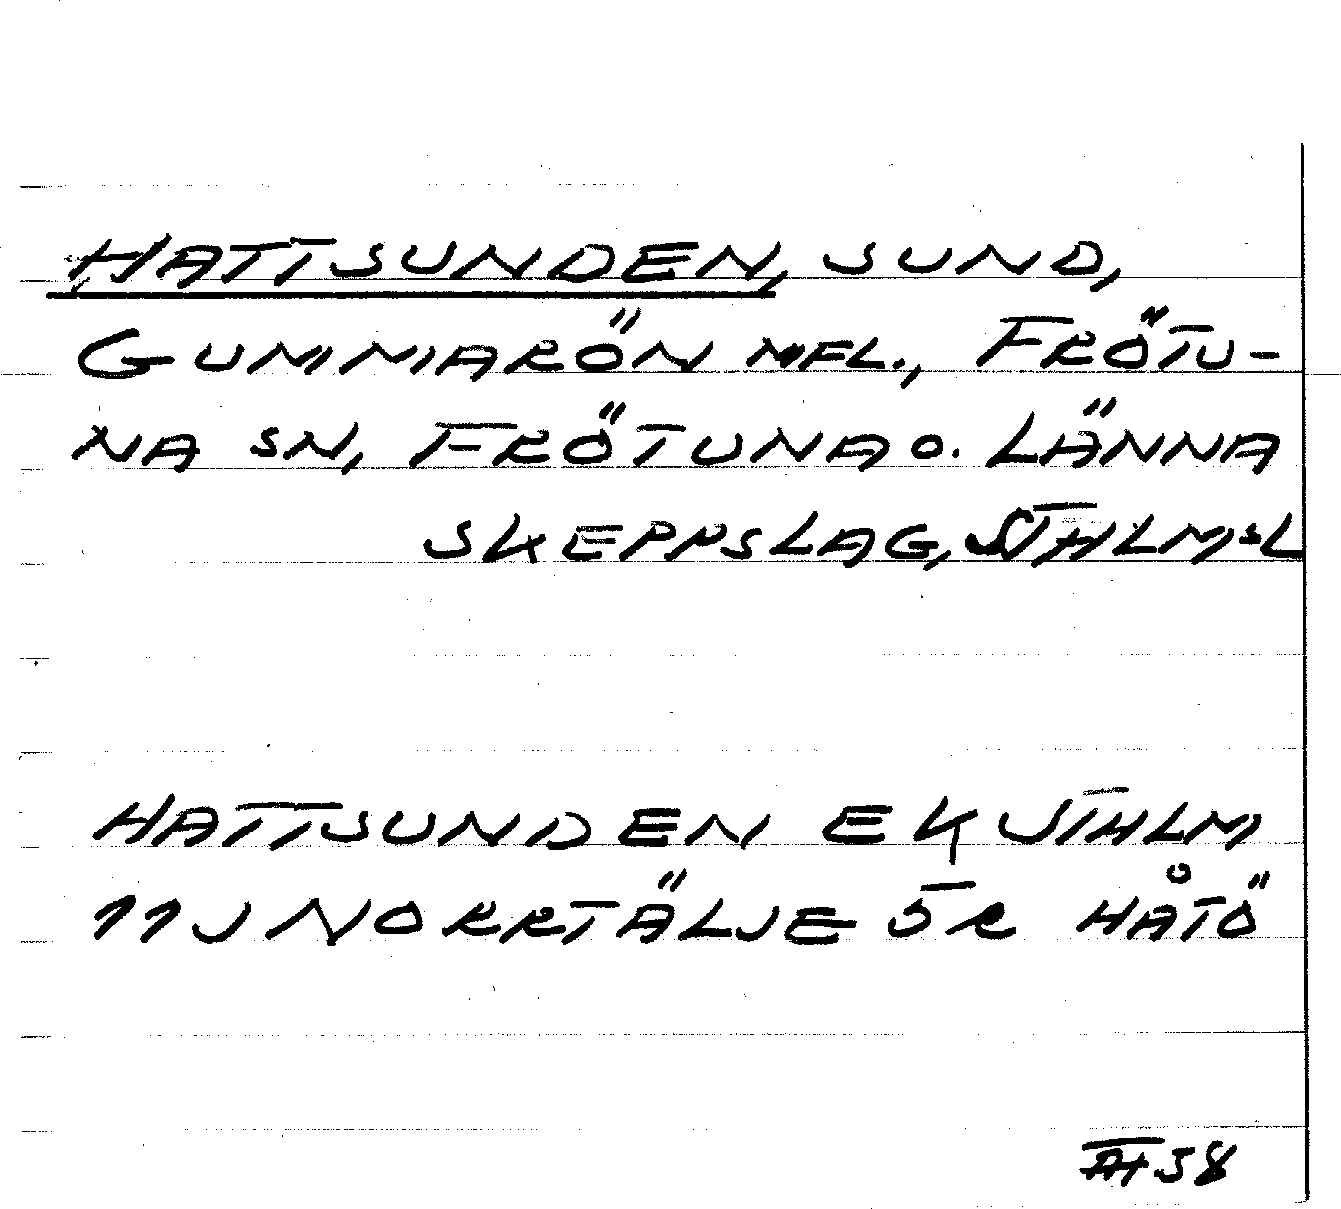 HATTSUNDEN, SUND,
GUMMARÖN MFL., FRÖTU-
NA SN, FRÖTUNA O. LÄNNA
SKEPPSLAG, STHLMSL
HATTSUNDEN EK STHLM
11J NORRTÄLJE 5R HÅTÖ
58